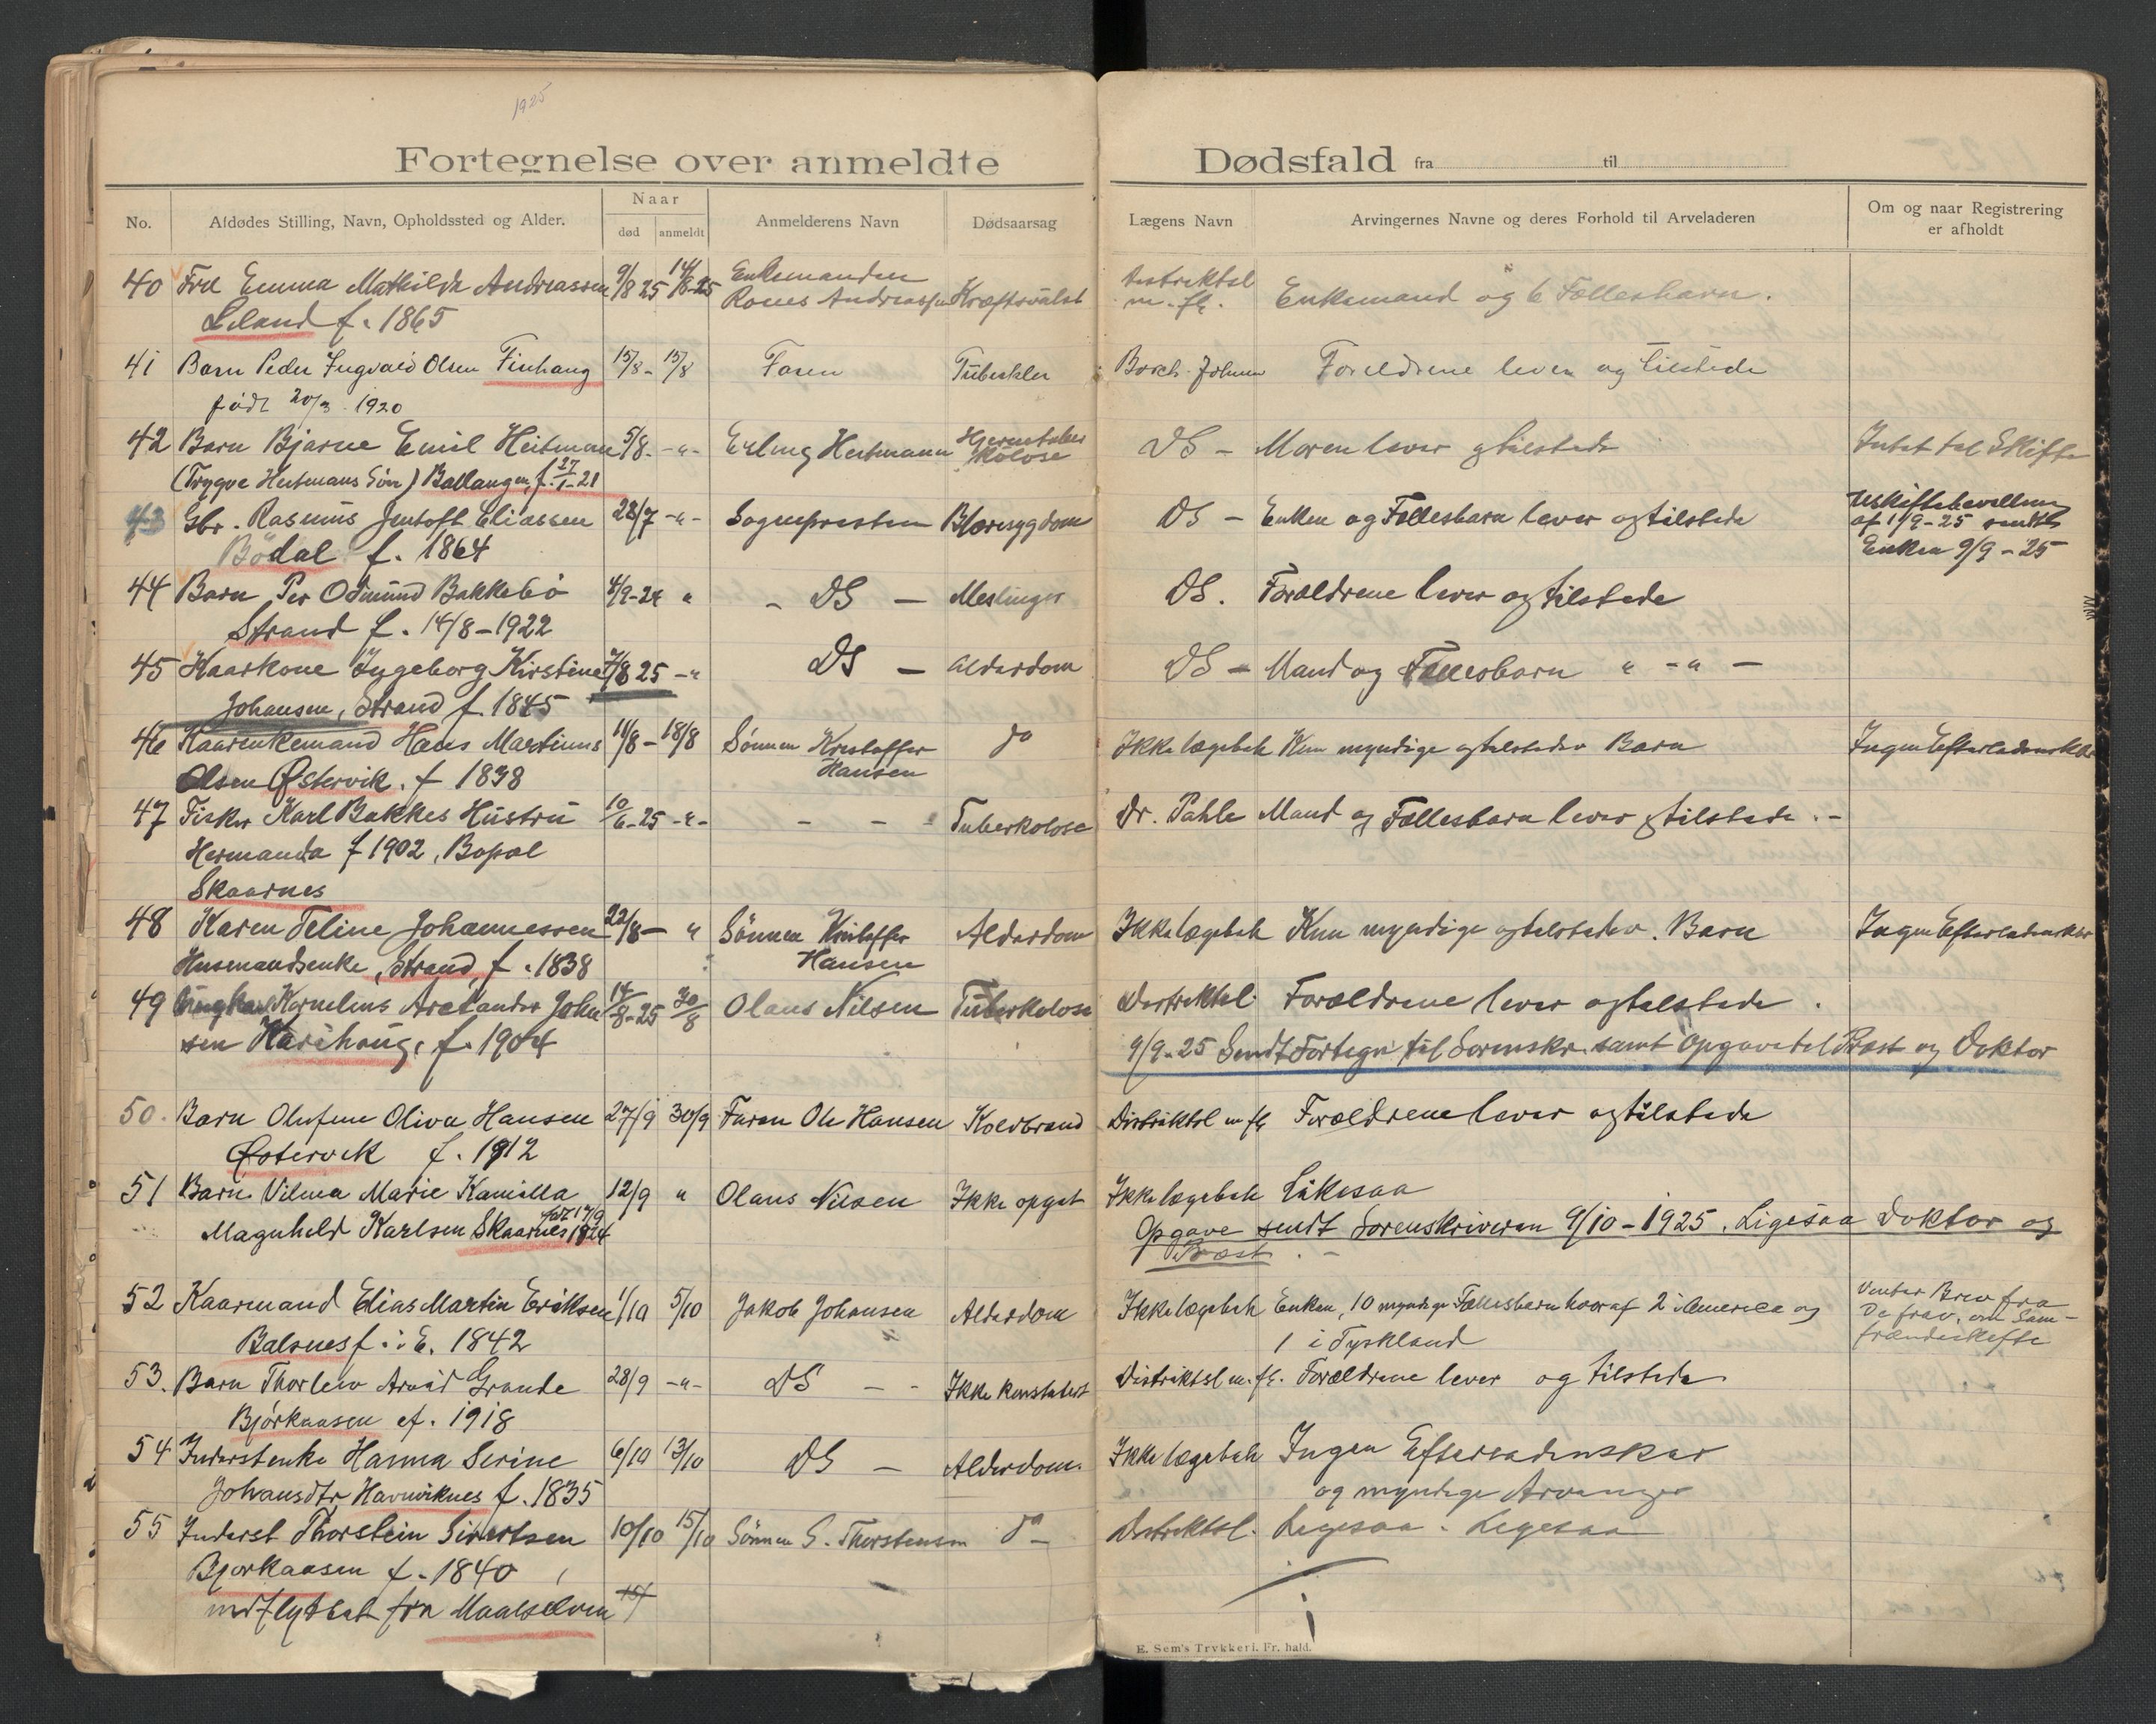 1925
Fortegnelse over anmeldte Dødsfald fra til
No. Afdødes Stilling, Navn, Opholdssted og Alder. Naar Anmelderens Navn Dødsaarsag Lægens Navn Arvingernes Navne og deres Forhold til Arveladeren Om og naar Registrering
død anmeldt er afholdt
40 Fru Emma Mathilde Andreassen 9/8 25 14/8-25 Enkemanden Kræftsvulst Distriktsl Enkemand og 6 Fællesbarn.
Leland f. 1865 Andreassen m. fl.
41 Barn Peder Ingvald Olsen Finhaug 15/8 - 15/8 Faren Tuberkler Borch-Johnsen Foreldrene lever og tilstede
født 20/3 1920
42 Barn Bjarne Emil Heitman 5/8. -"- Erling Heitmann Hjernetuber DS - Moren lever og tilstede Intet til Skifte
(Trygve Heitmans Søn) Ballangen, f. 27/1-21 kolose
43 Gbr. Rasmus Jentoft Eliassen 28/7 -"- Sognepresten Blæresygdom DS - Enken og Fællesbarn lever og tilstede Uskiftebevilling
Bødal f. 1864 af 1/9-25 sendt
Enken 9/9-25
44 Barn Per Odmund Bakkebø 4/9-24 " - DS - Meslinger DS. Forældrene lever og tilstede
Strand f. 14/8-1922
45 Kaarkone Ingeborg Kirstine 7/8 25 -" DS - Alderdom DS - Mand og Fællesbarn " -"-
Johansen, Strand f. 1845
46 Kaarenkemand Hans Martinus 11/8 - 18/8 Sønnen Kristoffer do Ikke lægebeh Kun myndige og tilstedev Barn Ingen Efterladenskber
Olsen Østervik. f 1838 Hansen
47 Fisker Karl Bakkes Hustru 10/6-25 -"- - - - Tuberkolose Dr. Pahle Mand og Fællesbarn lever og tilstede. -
Hermanda f 1902, Bopæl
Skaarnes
48 Karen Feline Johannessen 22/8 - " Sønnen Kristoffer Alderdom Ikke lægebeh Kun myndige og tilstedev. Barn Ingen Efterladenskber
Husmandsenke, Strand, f. 1838 Hansen
49 Kornelius Areeander Johan 14/8-25 30/8 Olaus Nilsen Tuberkolose Distriktsl Forældrene lever og tilstede.
sen Karihaug, f. 1904 9/9-25 Sendt Fortegn til Sorenskr. samt Opgave til Præst og Doktor
50. Barn Olufine Oliva Hansen 27/9 30/9 Faren Ole Hansen Koldbrand Distriktsl m fl Forældrene lever og tilstede
Østervik f. 1912
51 Barn Vilma Marie Kamilla 12/9 " Olaus Nilsen Ikke opgit Ikke lægebeh Likesaa
Maghild Karlsen Skaarnes 1924 Opgave sendt Sorenskriveren 9/10-1925. Ligesaa Doktor og
Præst. -
52 Kaarmand Elias Martin Eriksen 1/10 5/10 Jakob Johansen Alderdom Ikke lægebeh Enken, 10 myndige Fællesbarn hvoraf 2 i Amerika og Venter Brev fra
Balsnes f. i E. 1842 1 i Tyskland De frav. om Sam-
frændeskifte
53. Barn Thorleiv Arvid Grande 28/9 -"- DS - - Ikke konstatert Distriktsl m. fl. Forældrene lever og tilstede
Bjørkaasen f. 1918
54 Inderstenke Hanna Serine 6/10 13/10 DS - Alderdom. Ikke lægebeh Ingen Efterladenskber
Johansdtr Havnviknes f. 1835 og myndige Arvinger
55 Inderst Thorstein Sivertsen 10/10 15/10 Sønnen S. Thorstensen do - Distriktsl. Ligesaa. Ligesaa
Bjørkaasen f. 1840
indflyttet fra Maalselven
E. Sem's Trykkeri. Fr. hald.